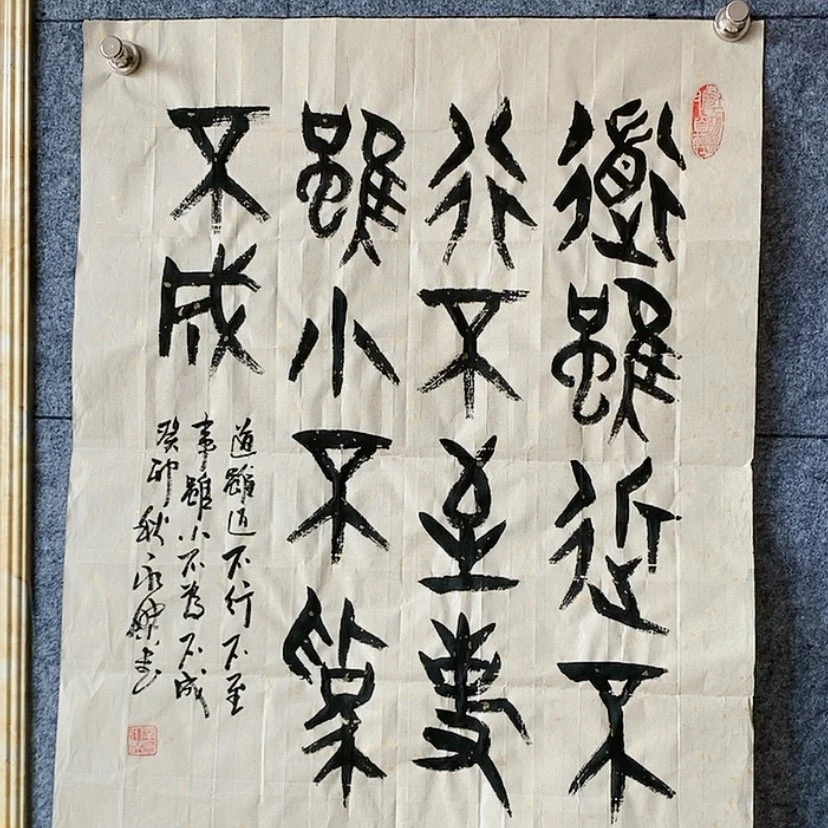 道雖近不
行不至事
雖小不為
不成
道雖近不行不至
事雖小不為不成
癸卯秋永